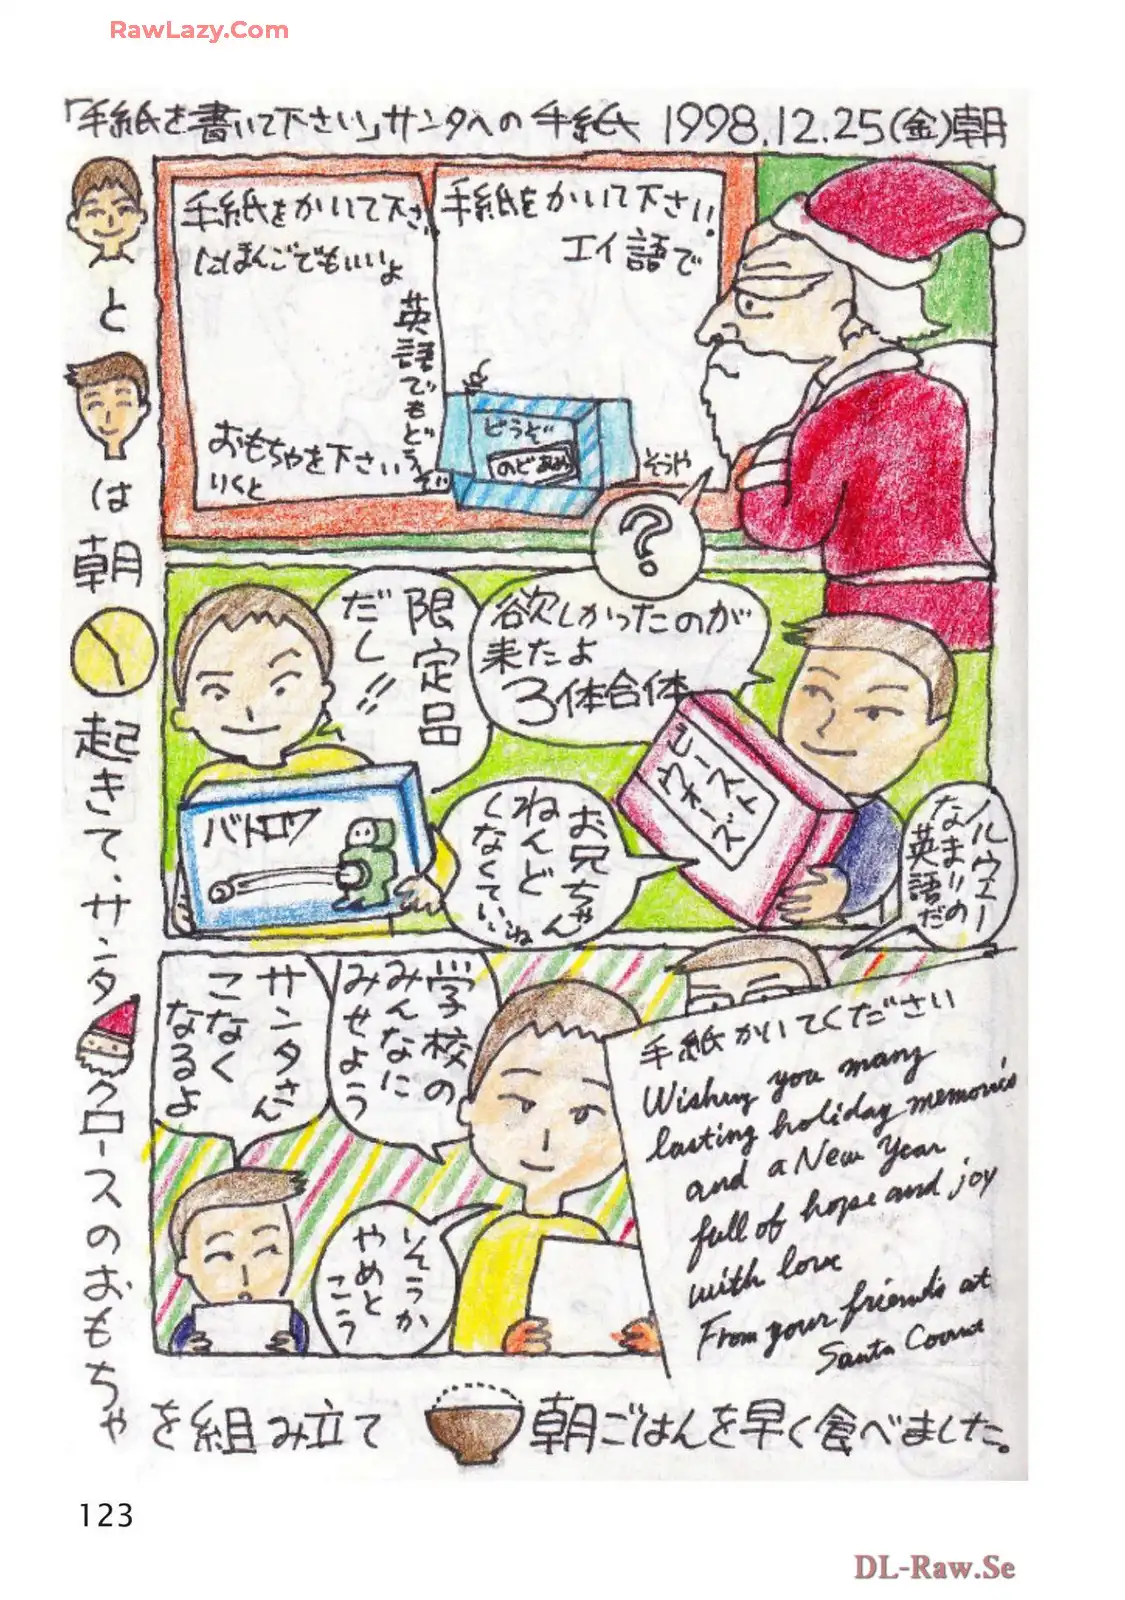 RawLazy.Com
「手紙を書いて下さい」サンタへの手紙 1998.12.25(金)朝
と
は
朝
起きて、サンタ
クロースのおもちゃ
を組み立て
朝ごはんを早く食べました。
手紙をかいて下さい
にほんごでもいいよ
英語でもどうぞ
おもちゃを下さい
りくと
手紙をかいて下さい!
エイ語で
どうぞ
のどあめ
そうや
?
限定品
だし!!
欲しかったのが
来たよ
3体合体
バトロワ
ビースト
ウォーズ
お兄ちゃん
ねんど
くなくていいね
ノルウェー
なまりの
英語だ
サンタさん
こなく
なるよ
学校の
みんなに
みせよう
そうか
やめと
こう
手紙かいてください
Wishing you many
lasting holiday memories
and a New Year
full of hope and joy
with love
From your friends at
Santa
123
DL-Raw.Se